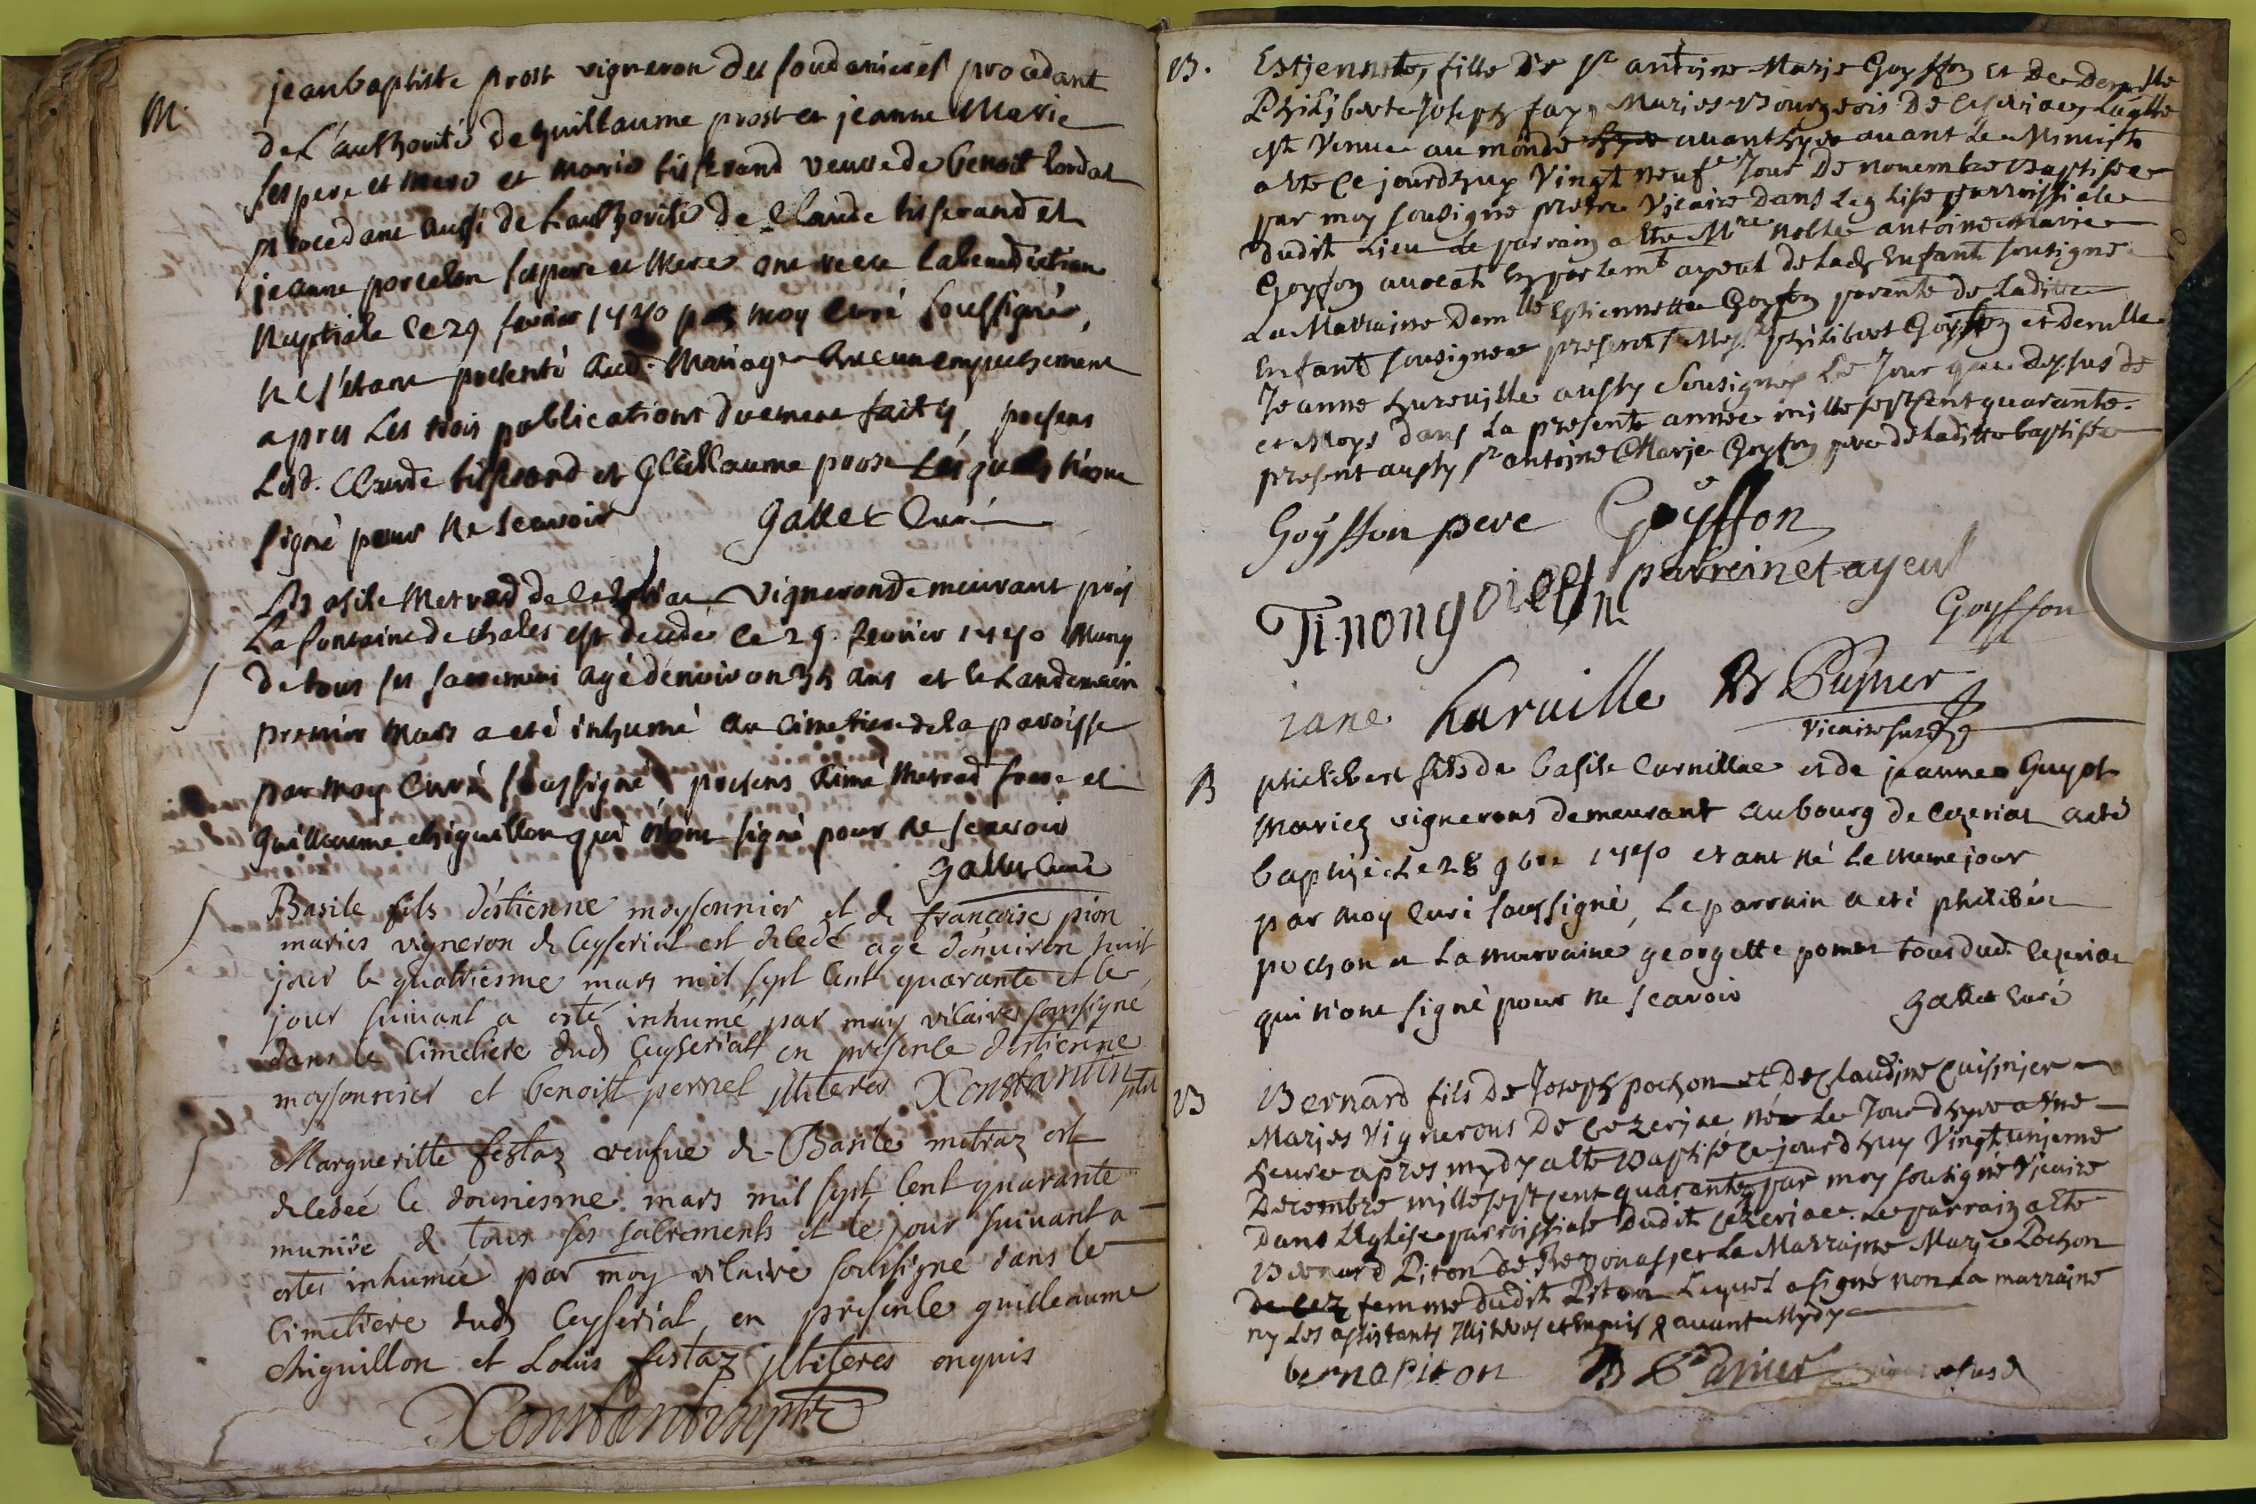 M
jean baptiste prost vigneron des soudanieres procedant
de L'authorité de guillaume prost et jeanne Marie
ses pere et mere et marie tisserand veuve de benoit
procedant aussi de L'authorité de Claude tisserand et
jeanne porcelon ses pere et Mere ont receu la benediction
Nuptiale le 29 fevrier 1740 par moy Curé soussigné,
ne s'etant presenté aud. Mariage aucun empechement
apres Les trois publications duement faites, presens
Lesd. Claude tisserand et guillaume prost Lesquels n'ont
signé pour ne scavoir Gallet Curé
S
Basile Metrad de vigneron demeurant pres
La fontaine de chales est decedé le 29. fevrier 1740 Muny
de tous ses sacremens agé d'environ 35 ans et le Landemain
premier Mars a eté inhumé au Cimetiere de la paroisse
par moy Curé soussigné presens Aimé Metrad frere et
guillaume chiguillon qui n'ont signé pour ne scavoir
Gallet Curé
S
Basile fils d'estienne moysonnier et de francoise pion
maries vigneron de Ceyseriat est decedé agé d'environ huit
jour le quatriesme mars mil sept cent quarante et le
jour suivant a esté inhumé par moy vicaire soussigné
dans le Cimetiere dud Ceyseriat en presence d'estienne
moysonnier et benoist pernet illiteres Xonstantin ptre
S
Margueritte festaz veufue de Basile metraz est
decedée le dousiesme mars mil sept cent quarante
munise de tous ses sacrements et le jour suivant a
estes inhumée par moy vicaire soussigné dans le
Cimetiere dud Ceyseriat en presence guilleaume
chiguillon et Louis festaz illiteres enquis
Xonstantin ptre
B.
Estjennete, fille de sr antoine Marie Goyffon et de Demlle
Philiberte Joseph fay Maries Bourgeois De Ceseriac Laqlle
est Venue au monde hyer avanthyer avant Le Minuit
a ete ce jourdhuy Vingt neufe Jour De novembre Baptisée
par moy sousigné pretre Vicaire dans Leglise parroissiale
dudit Lieu le parrain a ete Mre noble antoine Marie
Goyfon avocat en parlemt ayeul de lad Enfant sousigné
La Marraine Demlle Estiennette Goyfon parente de Laditte
Enfant sousignee presents Messr philibert Goyffon et demlle
Jeanne hureville aussy Sousignés Le Jour que dessus de
et Moys dans La presente année mille sept sent quarante.
present aussy sr antoine Marie Goyfon pere de laditte baptisée
Goyffon pere Goyffon
parrein et ayeul
Ti.nongoiffon Goyffon
iane huruille B
Vicaire susd
B
philibert fils de basile Cornillac et de jeanne Guyot
Mariez vignerons demeurant au bourg de Cezeriat a eté
baptizé Le 28 9bre 1740 etant né Le meme jour
par moy Curé soussigné, Le parrain a eté philibert
pochon et La marraine georgette pomer tous dud. Cezeriac
qui n'ont signé pour ne scavoir Gallet Curé
B
Bernard fils de Joseph pochon et de Claudine Cuisinier
Maries Vignerons De Cezeriac née Le Jour dhyer a une
heure apres mydy a ete Baptisé ce jourdhuy Vingt unieme
Decembre mille sept cent quarante par moy sousigné Vicaire
Dans L'Eglise parroissiale Dudit Cezeriac. Le parrain a ete
Bernard Piron de Revonas et La Marraine Marie Pochon
de Cez femme dudit Piron Lequel a signé non La marraine
ny Les assistants Illiteres et Enquis avant Mydy
berna Piron B vicaire susd